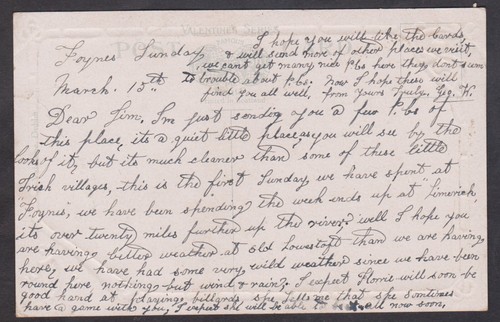 VALENTINES SERIES
POST
I hope you will like the Cards,
Foynes Sunday & will send more of other places we visit,
we cant get many nice P.bs here they dont seem
March. 13th. to trouble about P.bs. Now I hope these will
find you all well, from Yours Truly. Geo. W.
Dear Jim. I'm just sendig you a few P.bs of
this place, its a quiet little place, as you will see by the
looks of it, but its much cleaner than some of these little
Irish villages, this is the first Sunday we have spent at
"Foynes", we have been spending the week ends up at "Limerick"
its over twenty miles further up the river. Well I hope you
are having better weather at old Lowestoft than we are having
here, we have had some very wild weather since we have been
round here nothing but wind & rain. I expect Florrie will soon be
good hand at playing billards, she tells me that she somtimes
have a game with you, I expect she will be able to all now soon,